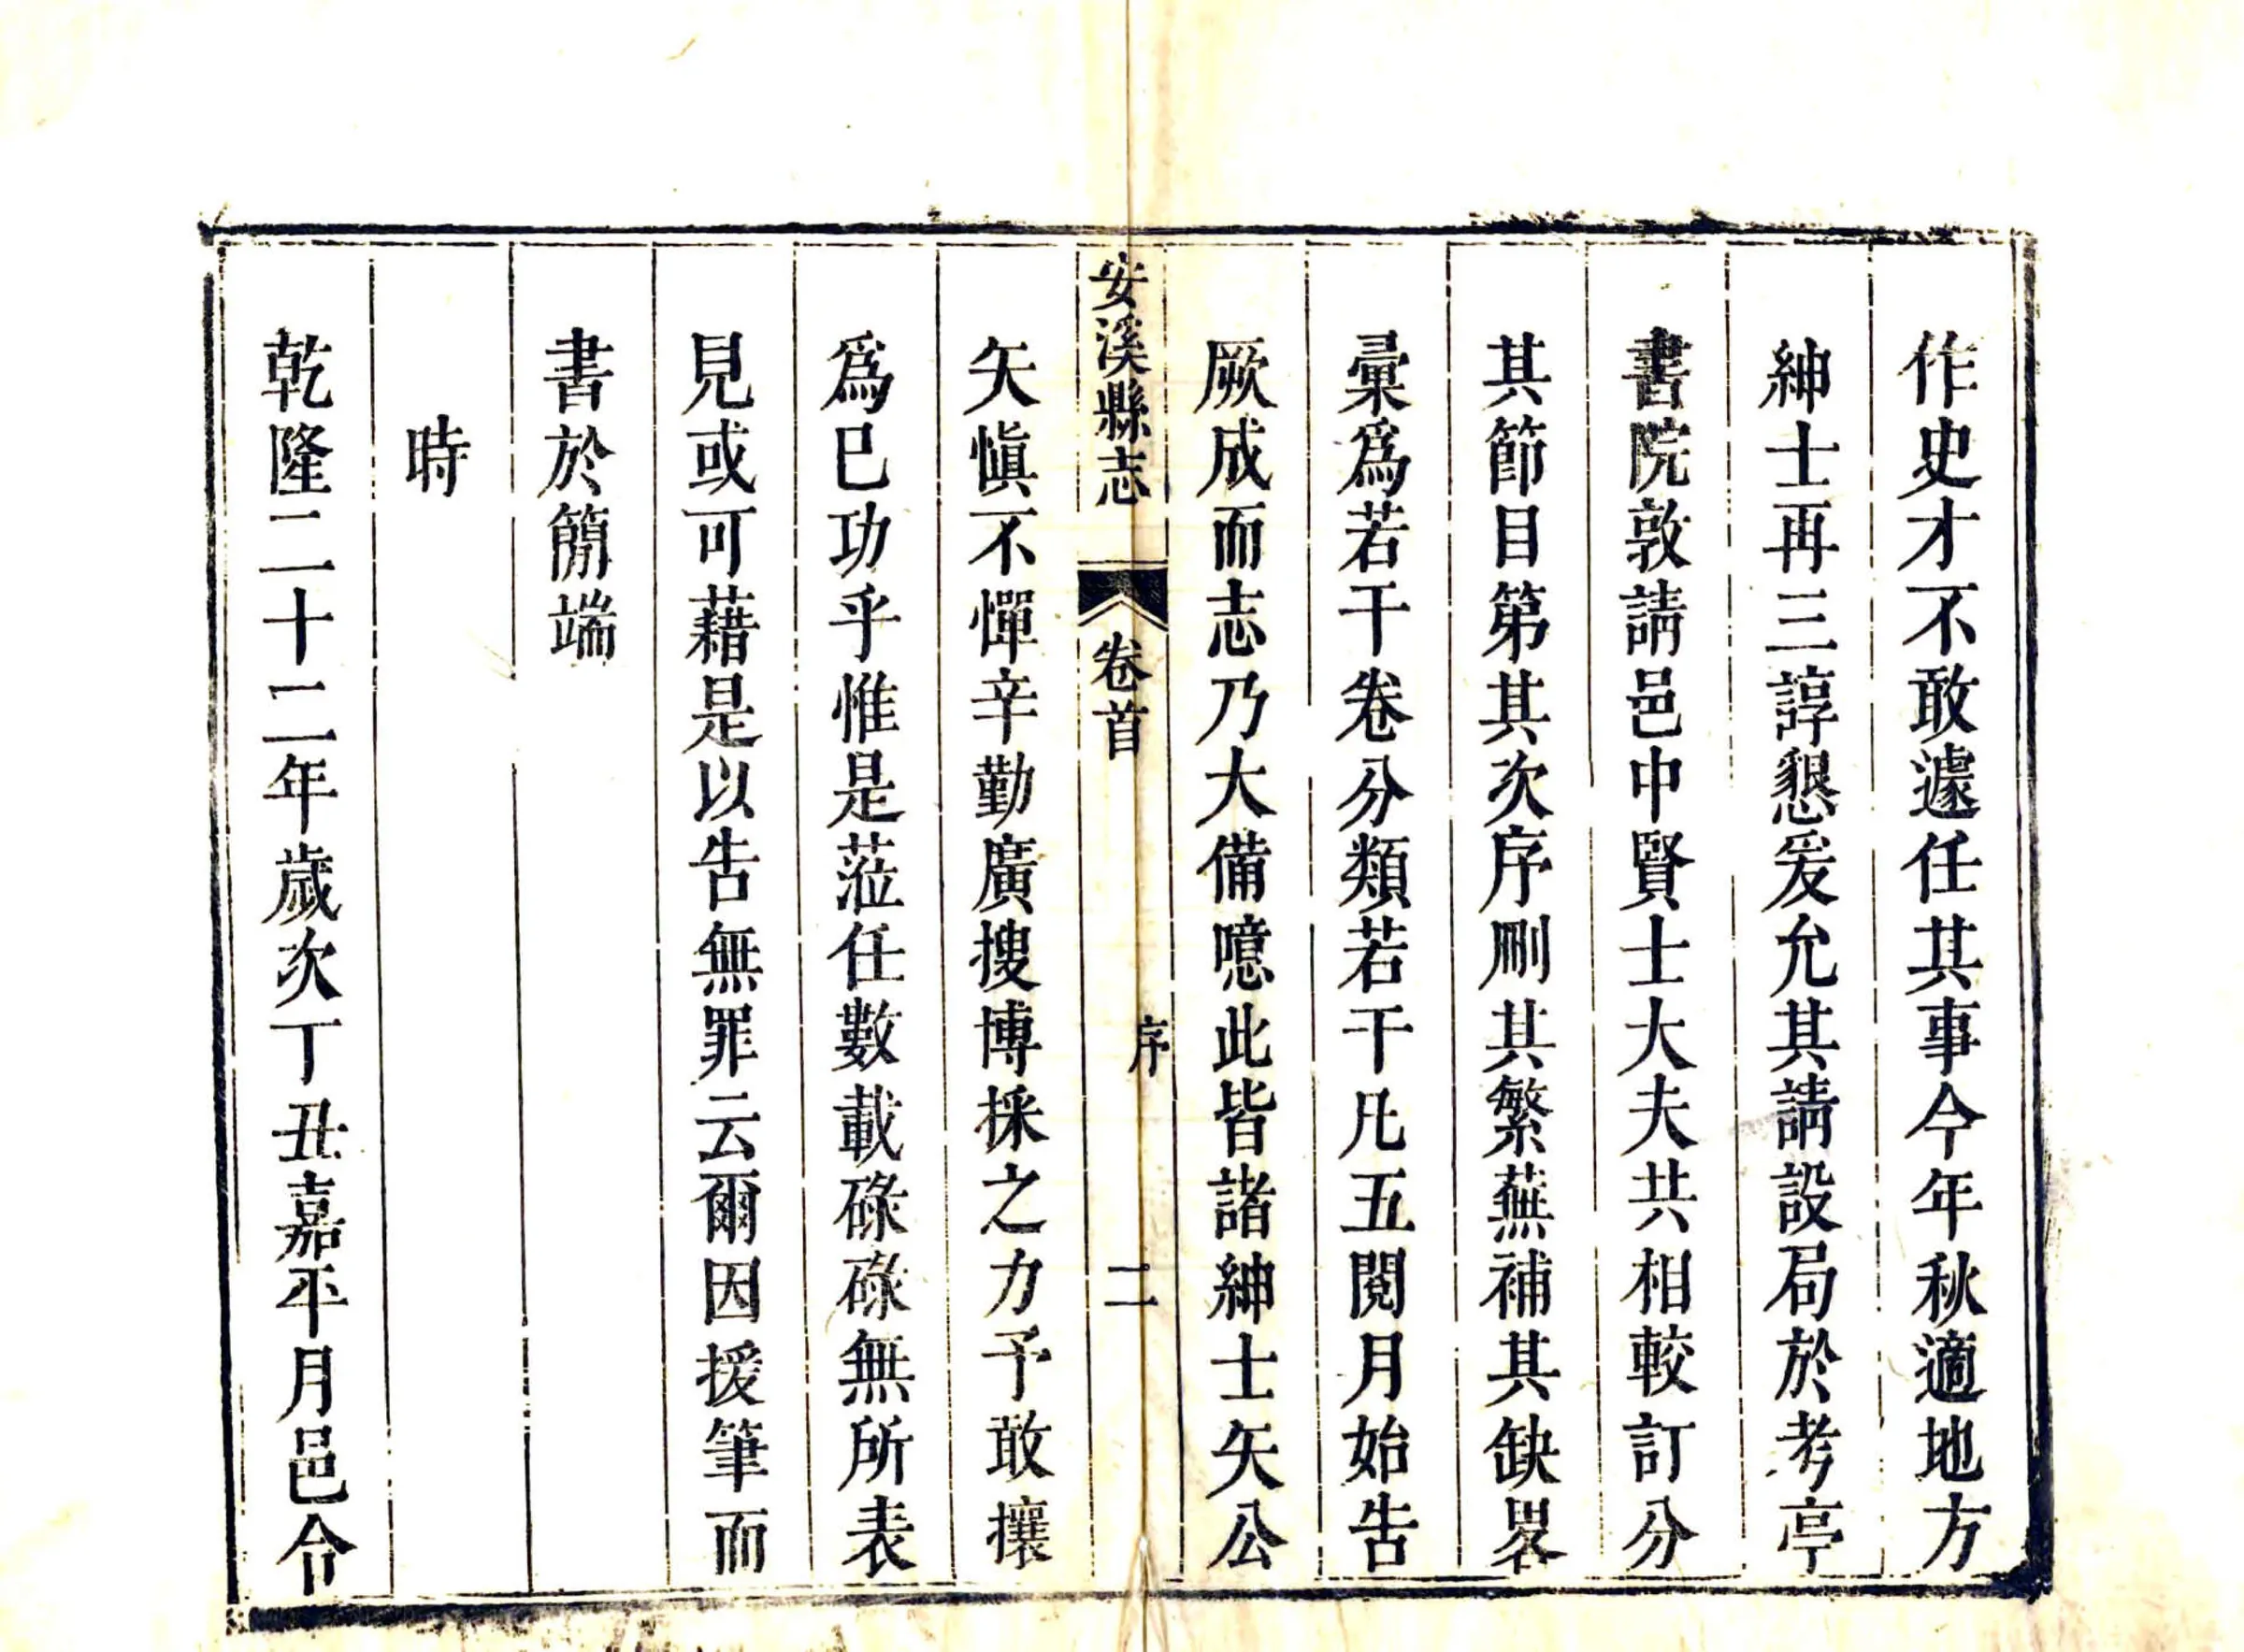 作史才不敢遽任其事今年秋適地方
紳士再三諄懇爰允其請設局於考亭
書院敦請邑中賢士大夫共相較訂分
其節目第其次序刪其繁蕪補其缺畧
彙爲若干卷分類若干凡五閱月始告
厥成而志乃大備噫此皆諸紳士矢公
安溪縣志 卷首 序 二
矢慎不憚辛勤廣搜博採之力予敢攘
爲巳功乎惟是蒞任數載碌碌無所表
見或可藉是以告無罪云爾因援筆而
書於簡端
時
乾隆二十二年歲次丁丑嘉平月邑令